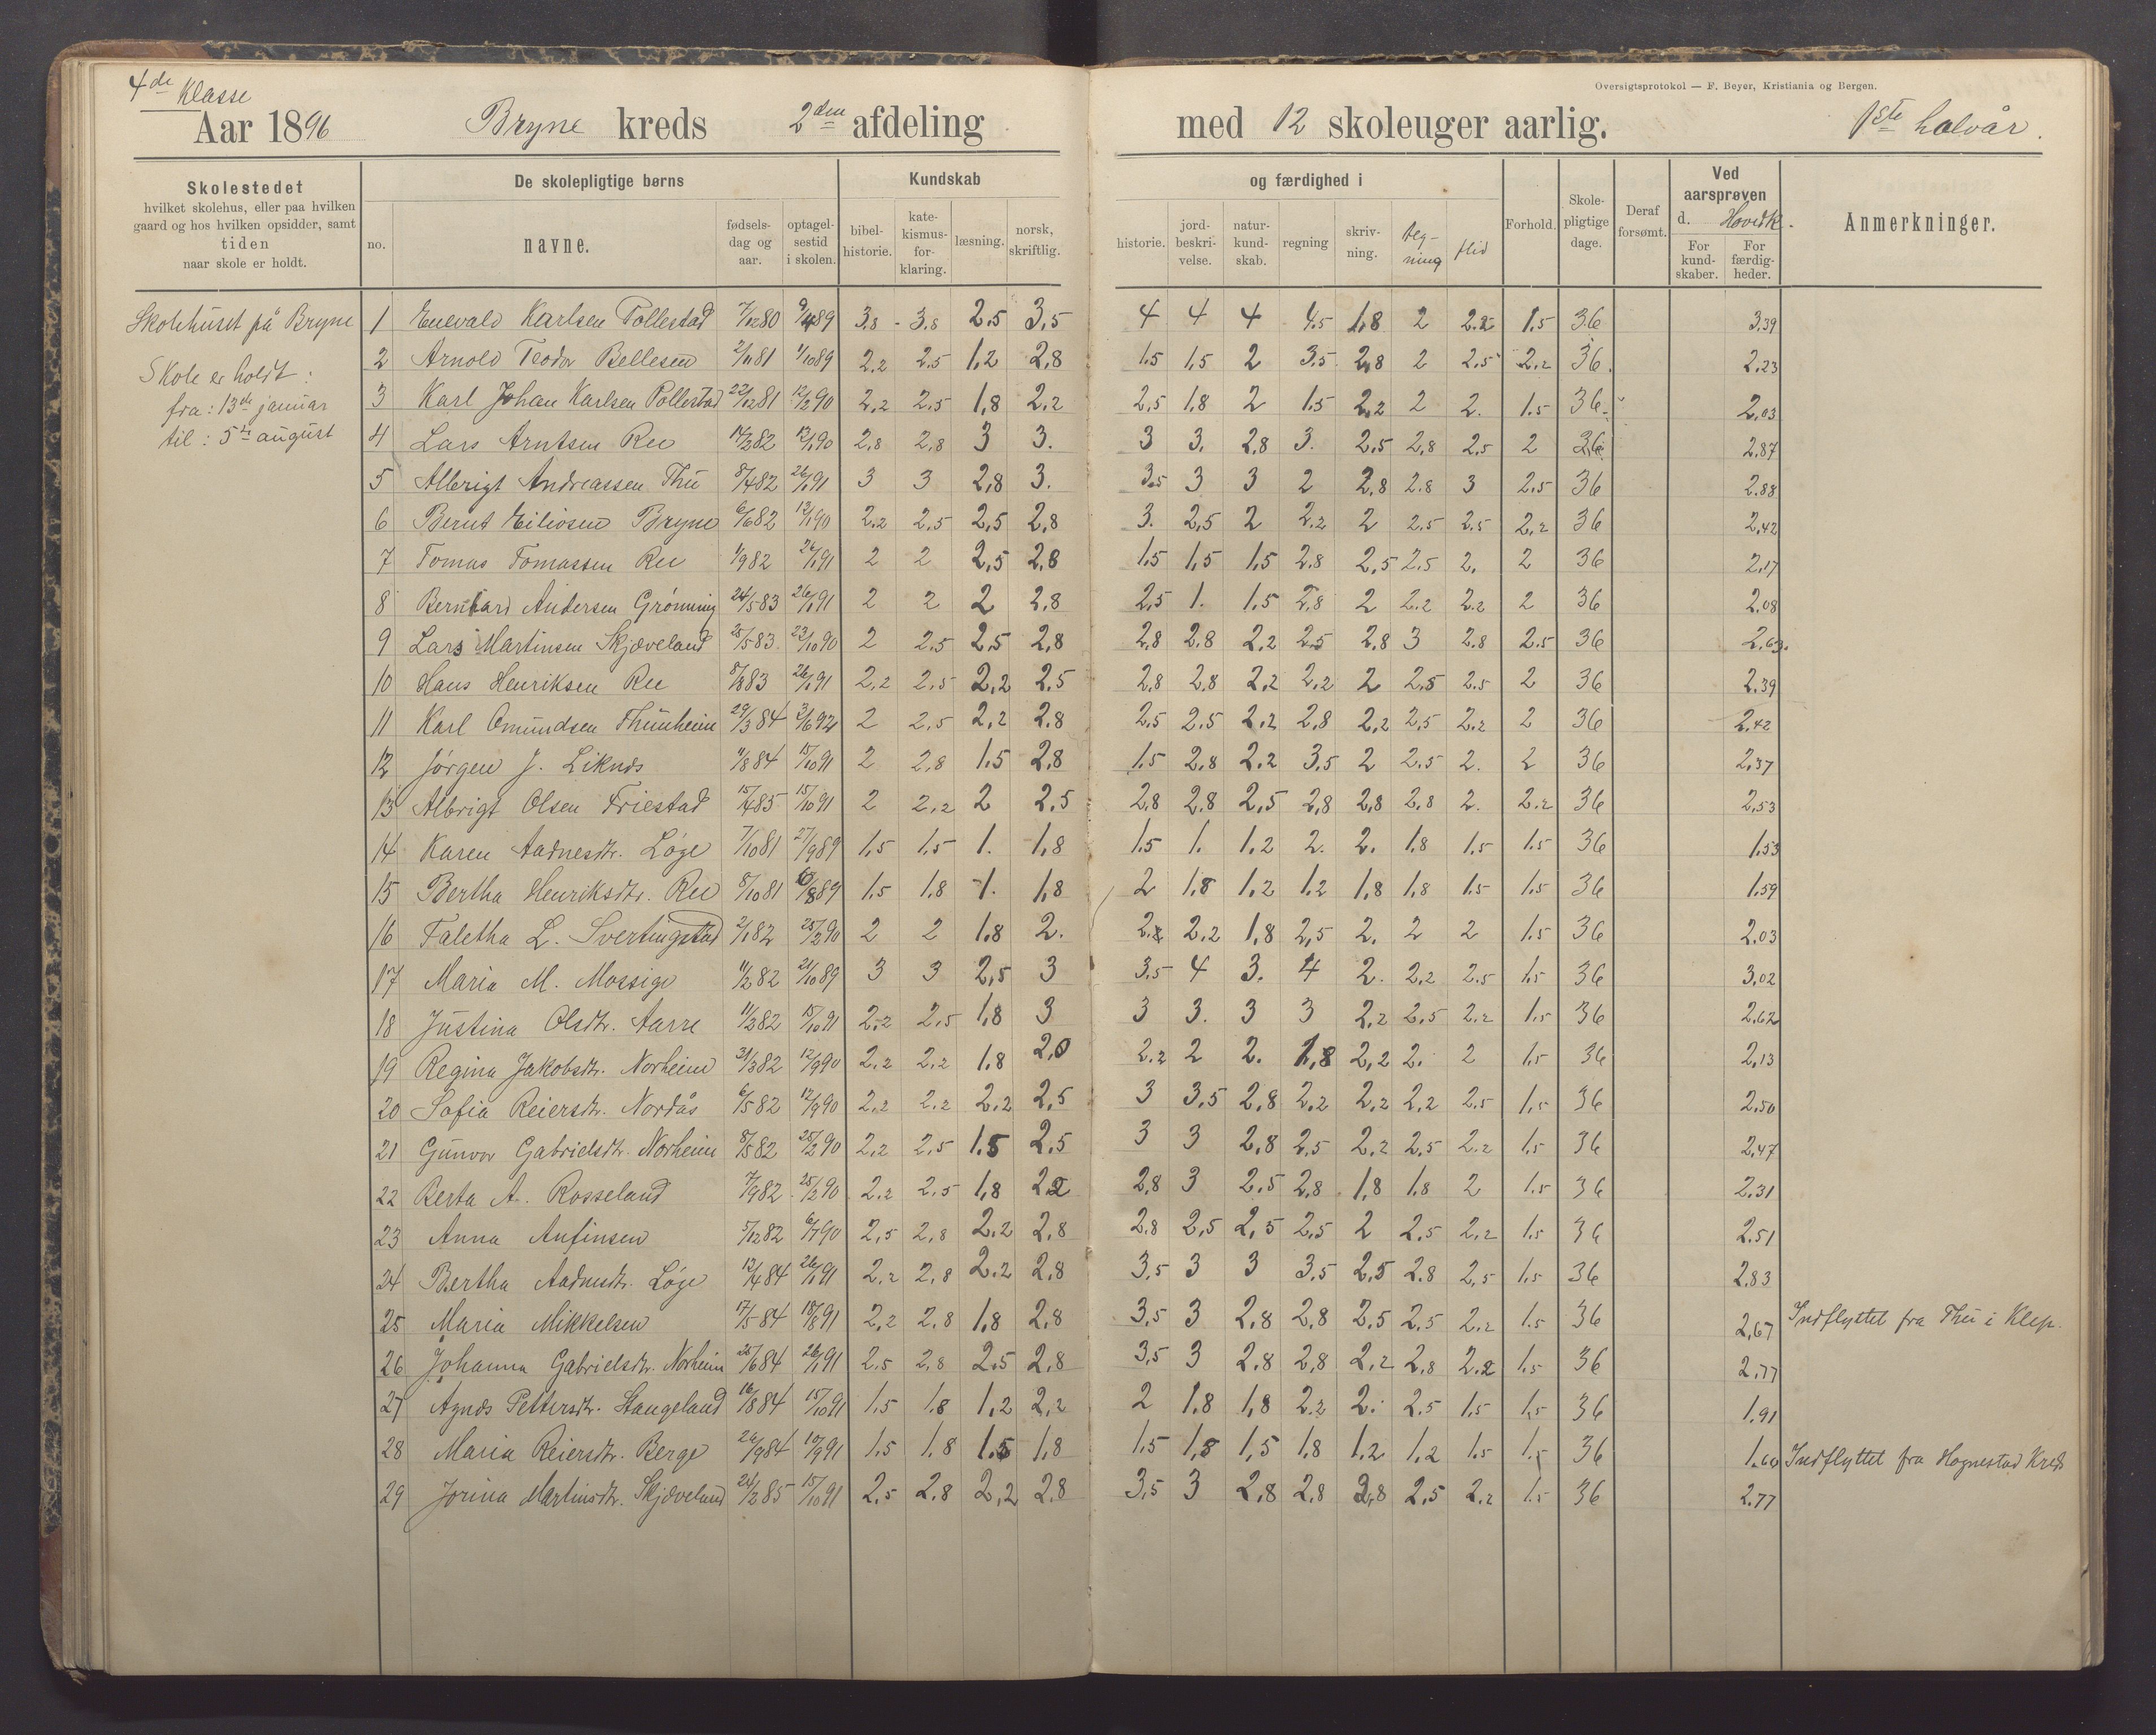 4de Klasse
Oversigtsprotokol — F. Beyer, Kristiania og Bergen.
Aar 1896 Bryne kreds 2den afdeling med 12 skoleuger aarlig. 1ste halvår.
Skolestedet
hvilket skolehus, eller paa hvilken
gaard og hos hvilken opsidder, samt
tiden
naar skole er holdt.
De skolepligtige børns
no. navne. fødsels-dag og aar. optagel-sestid i skolen.
Kundskab og færdighed i
bibel-historie. kate-kismus-for-klaring. læsning. norsk, skriftlig. historie. jord-beskri-velse. natur-kund-skab. regning skriv-ning. teg-ning flid
Forhold. Skole-pligtige dage. Deraf forsømt.
Ved aarsprøven d. Hovedk.
For kund-skaber. For færdig-heder.
Anmerkninger.
Skolehuset på Bryne
Skole er holdt:
fra: 13de januar
til: 5te august
1 Enevald Karlsen Pollestad 7/12 80 9/4 89 3,8 3,8 2,5 3,5 4 4 4 4,5 1,8 2 2.2 1.5 36 3.39
2 Arnold Teodor Bellesen 2/11 81 1/10 89 2,2 2,5 1,2 2,8 1.5 1,5 2 3.5 2,8 2 2.5 2.2 36 2.23
3 Karl Johan Karlsen Pollestad 22/12 81 12/2 90 2,2 2,5 1,8 2,2 2,5 1,8 2 1.5 2,2 2 2. 1.5 36 2,03
4 Lars Arntsen Ree 14/2 82 13/1 90 2,8 2,8 3 3. 3 3. 2,8 3. 2.5 2,8 2,5 2 36 2.87
5 Albrigt Andreassen Thu 8/4 82 26/1 91 3 3 2,8 3. 3.5 3 3 2 2.8 2.8 3 2.5 36 2.88
6 Bernt Eiliosen Bryne 6/6 82 13/1 90 2.2 2,5 2,5 2,8 3. 2,5 2 2.2 2 2.5 2.5 2,2 36 2,42
7 Tomas Tomassen Ree 1/9 82 26/1 91 2 2 2,5 2,8 1.5 1,5 1,5 2.8 2,5 2.5 2, 2 36 2,17
8 Bernhard Andersen Grønning 24/5 83 26/1 91 2 2 2 2,8 2,5 1. 1,5 2,8 2 2.2 2.2 2 36 2,08
9 Lars Martinsen Skjæveland 28/5 83 23/10 90 2 2,5 2,5 2,8 2,8 2.8 2,2 2,5 2.8 3 2.8 2.5 36 2,63.
10 Hans Henriksen Ree 8/8 83 26/1 91 2,2 2,5 2,2 2.5 2,8 2.8 2,2 2,2 2 2,5 2.5 2 36 2.39
11 Karl Omundsen Thunheim 29/3 84 3/6 92 2 2,5 2,2 2.8 2.5 2.5 2.2 2,8 2,2 2,5 2,2 2 36 2,42
12 Jørgen J. Liknæs 11/8 84 15/10 91 2 2,8 1.5 2,8 1.5 2.8 2.2 3,5 2 2.5 2. 2 36 2,37
13 Albrigt Olsen Friestad 15/4 85 15/10 91 2 2,2 2 2,5 2,8 2.8 2,5 2,8 2,8 2,8 2. 2.2 36 2,53
14 Karen Aadnesdtr. Løge 7/10 81 27/9 89 1,5 1,5 1. 1,8 1.5 1. 1,2 2. 2. 1.8 1,5 1.5 36 1.53
15 Bertha Henriksdtr. Ree 8/10 81 /8 89 1,5 1,8 1. 1,8 2 1,8 1,2 1,2 1,8 1,8 1.5 1.5 36 1.59
16 Taletha L. Svertingstad 2/1 82 25/2 90 2 2 1.8 2. 2.2 2,2 1,8 2,5 2. 2 2 1.5 36 2.03
17 Maria M. Mossige 11/2 82 21/10 89 3 3 2,5 3 3.5 4 3. 4 2. 2,2 2.5 1.5 36 3,02
18 Justina Olsdtr. Aarre 11/2 82 15/10 91 2,2 2,5 1,8 3 3 3. 3 3 2,2 2,5 2,2 1,5 36 2.62
19 Regina Jakobsdtr. Norheim 31/3 82 12/9 90 2,2 2,2 1,8 2,0 2.2 2 2. 1,8 2,2 2. 2 1.5 36 2,13
20 Sofia Reiersdtr. Nordås 6/5 82 12/9 90 2,2 2.2 2,2 2,5 3 3.5 2,8 2,2 2,2 2,2 2,5 1,5 36 2,50
21 Gunvor Gabrielsdtr. Norheim 8/8 82 25/2 90 2,2 2,5 1.5 2,5 3 3 2,8 2,5 2,2 2,5 2.2 1.5 36 2,47
22 Berta A. Rosseland 7/9 82 25/2 90 2.2 2.5 1,8 2.2 2,8 3 2.5 2,8 1,8 1.8 2 1.5 36 2.31
23 Anna Anfinsen 5/12 82 6/7 90 2,5 2,8 2.2 2,8 2.8 2,5 2,5 2,5 2 2.5 2,2 1.5 36 2.51
24 Bertha Aadnesdtr. Løge 13/4 84 26/1 91 2,2 2,8 2.2 2,8 3,5 3 3 3,5 2,5 2.8 2,5 1.5 36 2,83
25 Maria Mikkelsen 17/5 84 18/8 91 2,2 2,8 1,8 2,8 3,5 3 2,8 2,8 2,5 2,5 2.2 1.5 36 2,67 Indflyttet fra Thu i Klep.
26 Johanna Gabrielsdtr. Norheim 25/6 84 26/1 91 2.5 2,8 2.5 2,8 3,5 3 2.8 2,8 2,2 2,8 2.2 1.5 36 2.77
27 Agnæs Pettersdtr. Stangeland 16/8 84 15/10 91 1.5 1.8 1,2 2,2 2 1.8 1,8 2.2 2. 2.5 1.5 1.5 36 1.91
28 Maria Reiersdtr. Berge 26/9 84 10/9 91 1.5 1,8 1.5 1,8 1.5 1,8 1,5 1,8 1.2 1,2 1.5 1.5 36 1.60 Indflyttet fra Hognestad Kreds
29 Jorina Martinsdtr. Skjæveland 24/2 85 15/10 91 2,5 2.8 2,2 2,8 3,5 3 2,8 2,8 2,8 2,5 2.2 1.5 36 2.77